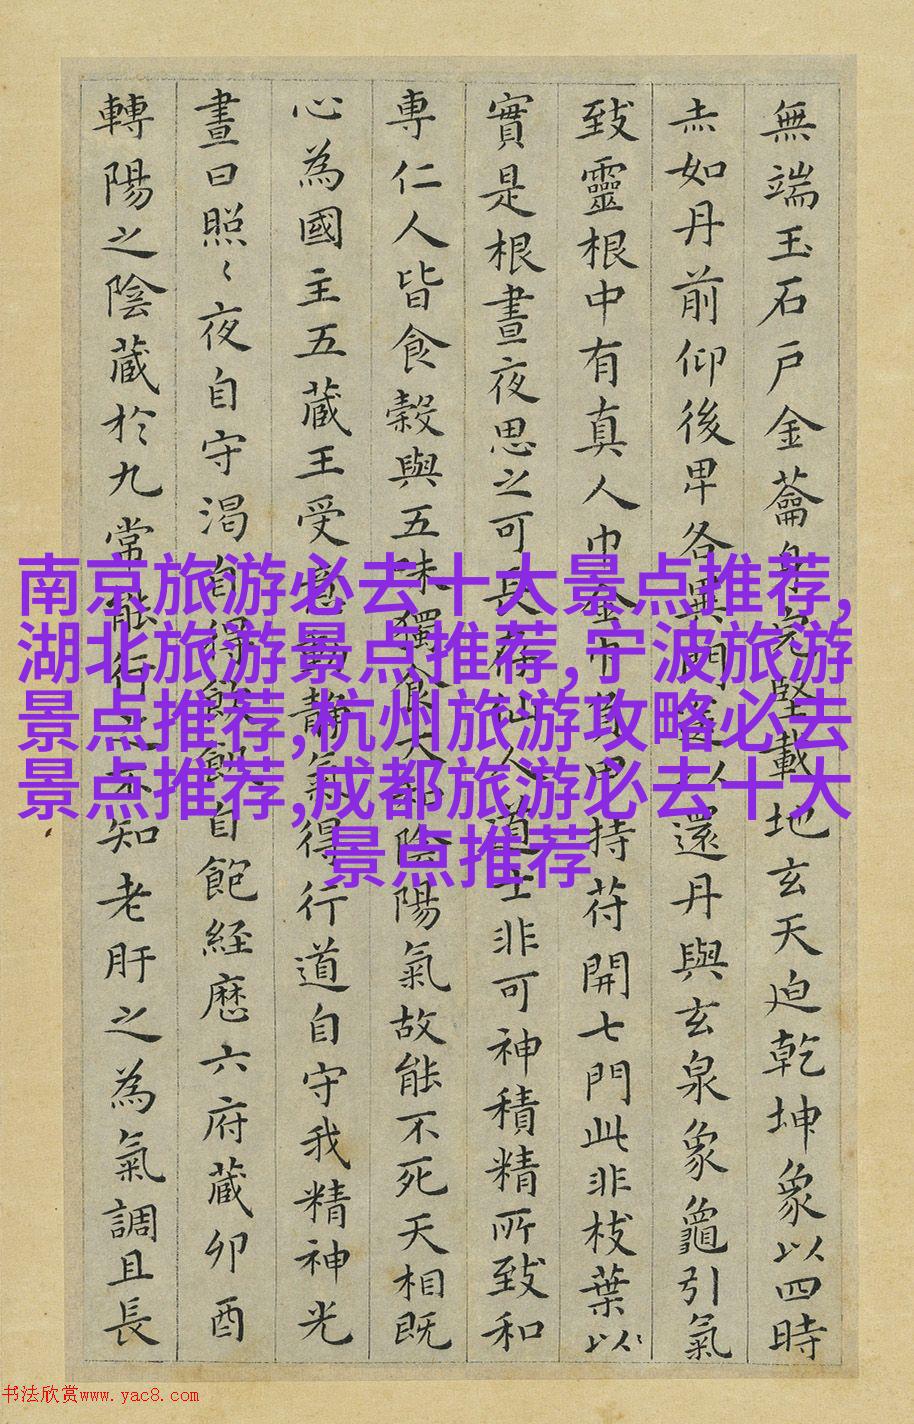 無端玉石戶金蘥身完堅載地玄天迫乾坤象以四時
赤如丹前仰後卑各異門送以還丹與玄泉象龜引氣
致靈根中有真人巾金巾負甲持苻開七門此非枝葉以
實是根晝夜思之可長存仙人道士非可神積精所致和
專仁人皆食穀與五味獨食大和陰陽氣故能不死天相既
心為國主五蔵王受意動靜氣得行道自守我精神光
晝日照〻夜自守渴自得飲飢自飽経歷六府蔵卯酉
轉陽之陰蔵於九常能行之不知老肝之為氣調且長
南京旅游必去十大景点推荐,
湖北旅游景点推荐,宁波旅游
景点推荐,杭州旅游攻略必去
景点推荐,成都旅游必去十大
景点推荐
书法欣赏www.yac8.com